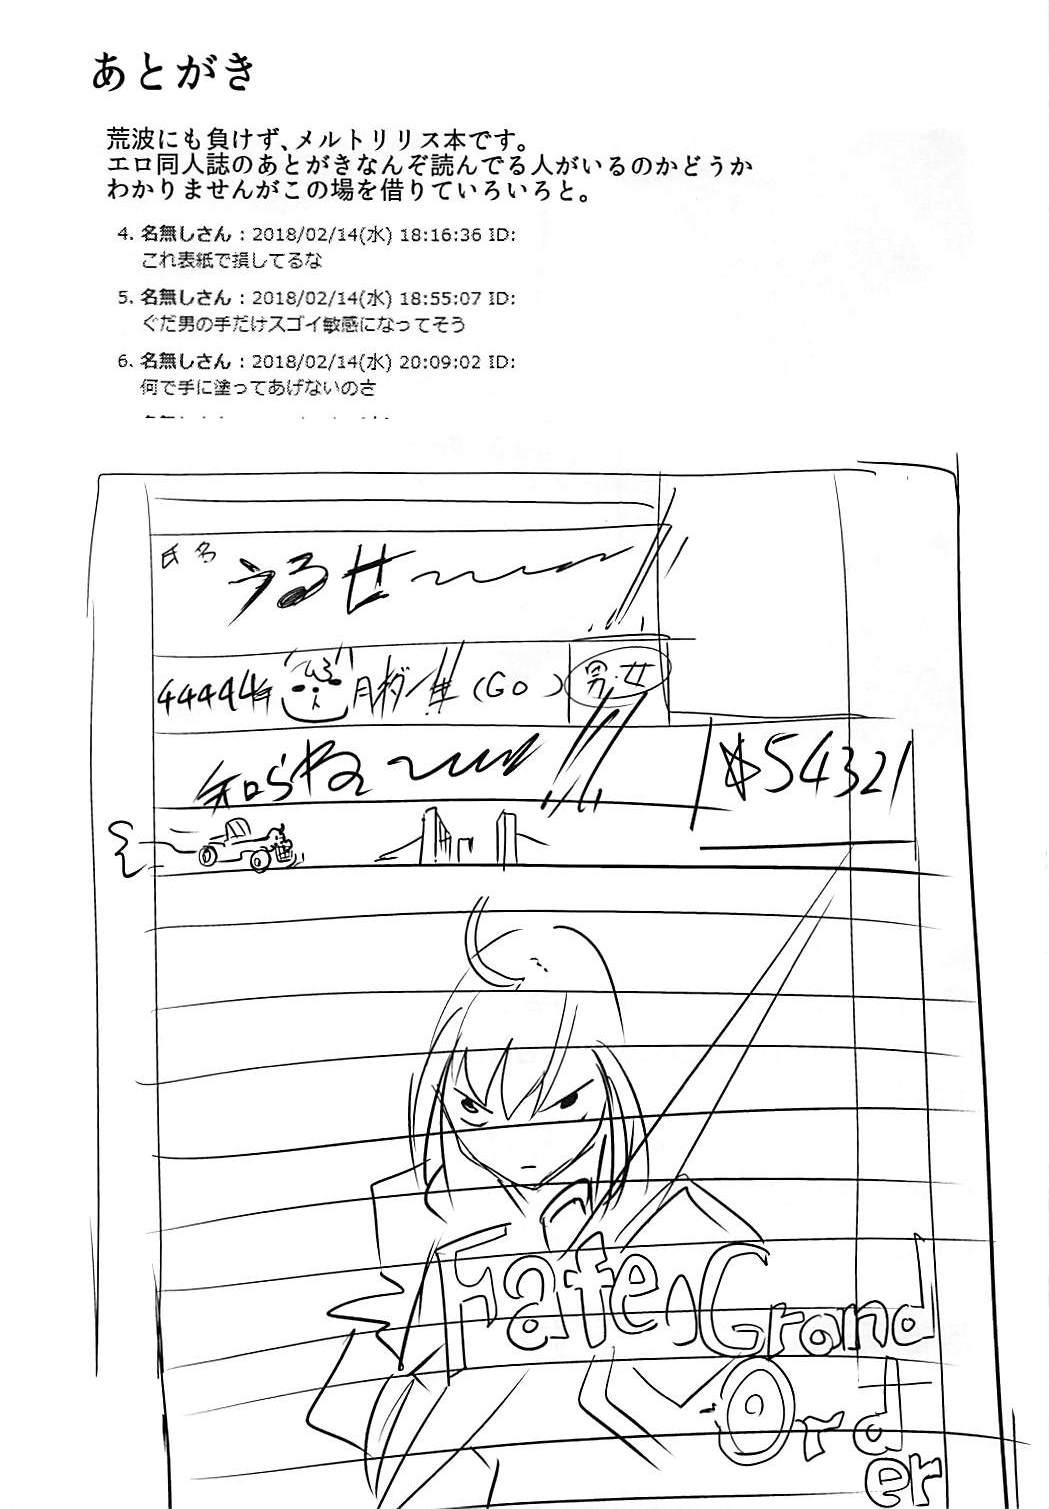 あとがき
荒波にも負けず、メルトリリス本です。
エロ同人誌のあとがきなんぞ読んでる人がいるのかどうか
わかりませんがこの場を借りていろいろと。
4. 名無しさん：2018/02/14(水) 18:16:36 ID:
これ表紙で損してるな
5. 名無しさん：2018/02/14(水) 18:55:07 ID:
ぐだ男の手だけスゴイ敏感になってそう
6. 名無しさん：2018/02/14(水) 20:09:02 ID:
何で手に塗ってあげないのさ
氏名
うるせ〜〜〜!!
44444年 月 (GO ) 男・女
知らね〜〜〜!!
54321
Fate/Grand
Order